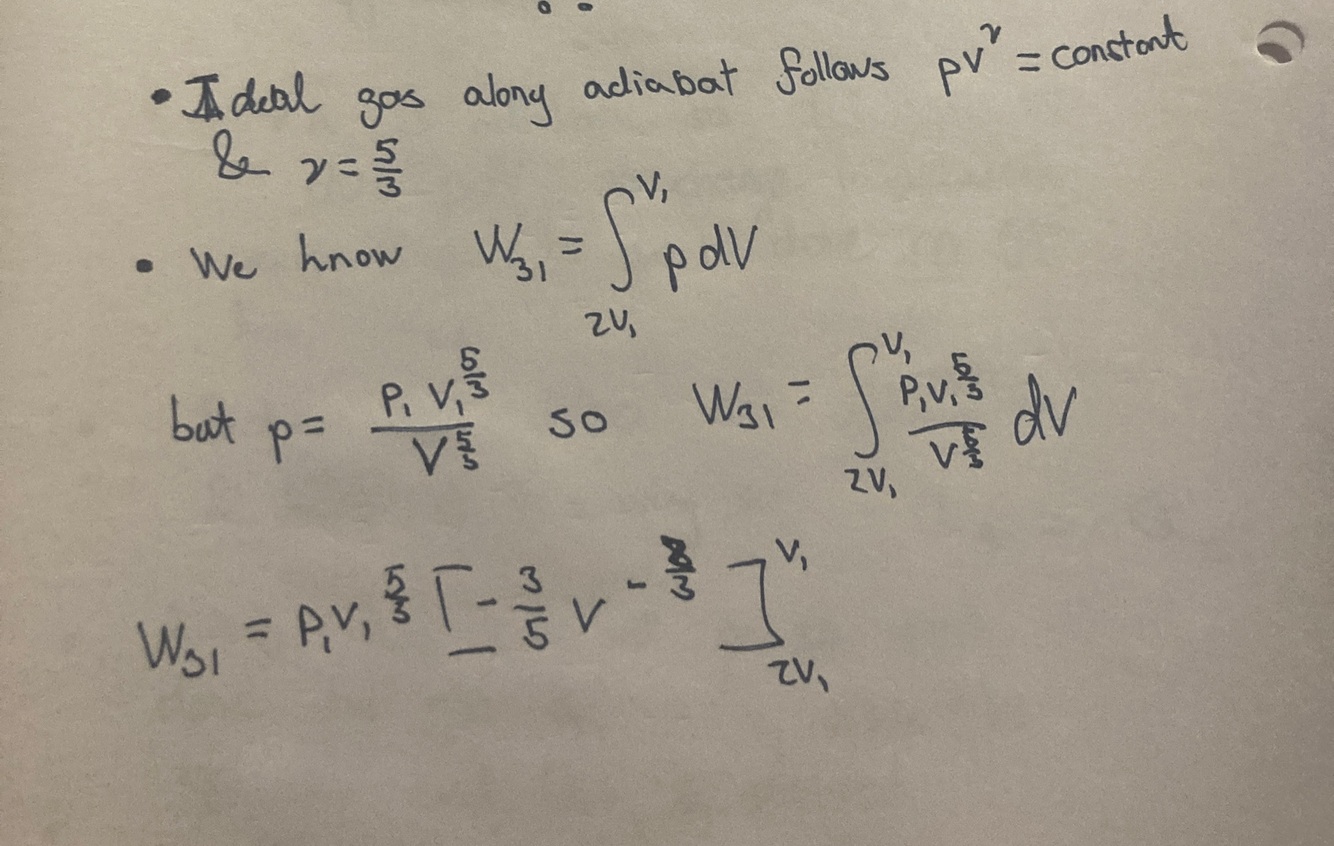 • Ideal gas along adiabat follows pV^γ = constant
& γ = 5/3
• We know W₃₁ = ∫_{2V₁}^{V₁} p dV
but p = P₁ V₁^{5/3} / V^{5/3} so W₃₁ = ∫_{2V₁}^{V₁} P₁V₁^{5/3} / V^{5/3} dV
W₃₁ = P₁V₁^{5/3} [ - 3/5 V^{- /3} ]_{2V₁}^{V₁}